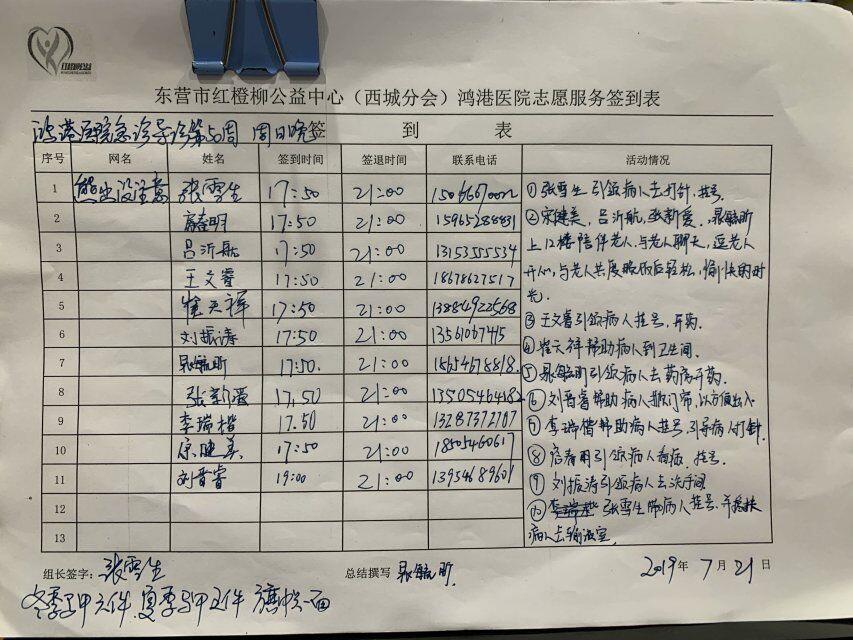 红橙柳公益
东营市红橙柳公益中心（西城分会）鸿港医院志愿服务签到表
鸿港医院急诊导诊第50周 周日晚 签 到 表
序号 网名 姓名 签到时间 签退时间 联系电话 活动情况
1 熊出没注意 张雪生 17:50 21:00
2 17:50 21:00 15965288831
3 吕沂航 17:50 21:00 13153555534
4 王文睿 17:50 21:00 18678627517
5 崔天祥 17:50 21:00 13884922568
6 刘振涛 17:50 21:00
7 晁毓昕 17:50. 21:00 15654678818
8 张新爱 17,50 21:00 13505464182
9 李瑞楷 17.50 21:00 13287372707
10 宋健美 17:50 21:00 18505460617
11 刘晋睿 19:00 21:00 13954689601
12
13
①张雪生引领病人去打针，挂号。
②宋健美，吕沂航，张新爱，晁毓昕
上12楼陪伴老人，与老人聊天，逗老人
开心，与老人共度晚饭后轻松，愉快的时
光。
③王文睿引领病人挂号，开药。
④崔天祥帮助病人到卫生间。
⑤晁毓昕引领病人去药房开药。
⑥刘晋睿帮助病人掀门帘，以方便出入
⑦李瑞楷帮助病人挂号，引导病人打针.
⑧ 引领病人 挂号.
⑨刘振涛引领病人去洗手间
⑩ 张雪生帮病人挂号，并搀扶
病人去输液室.
组长签字：张雪生 总结撰写 晁毓昕. 2019年 7月21日
冬季马甲六件 夏季马甲五件 旗帜一面